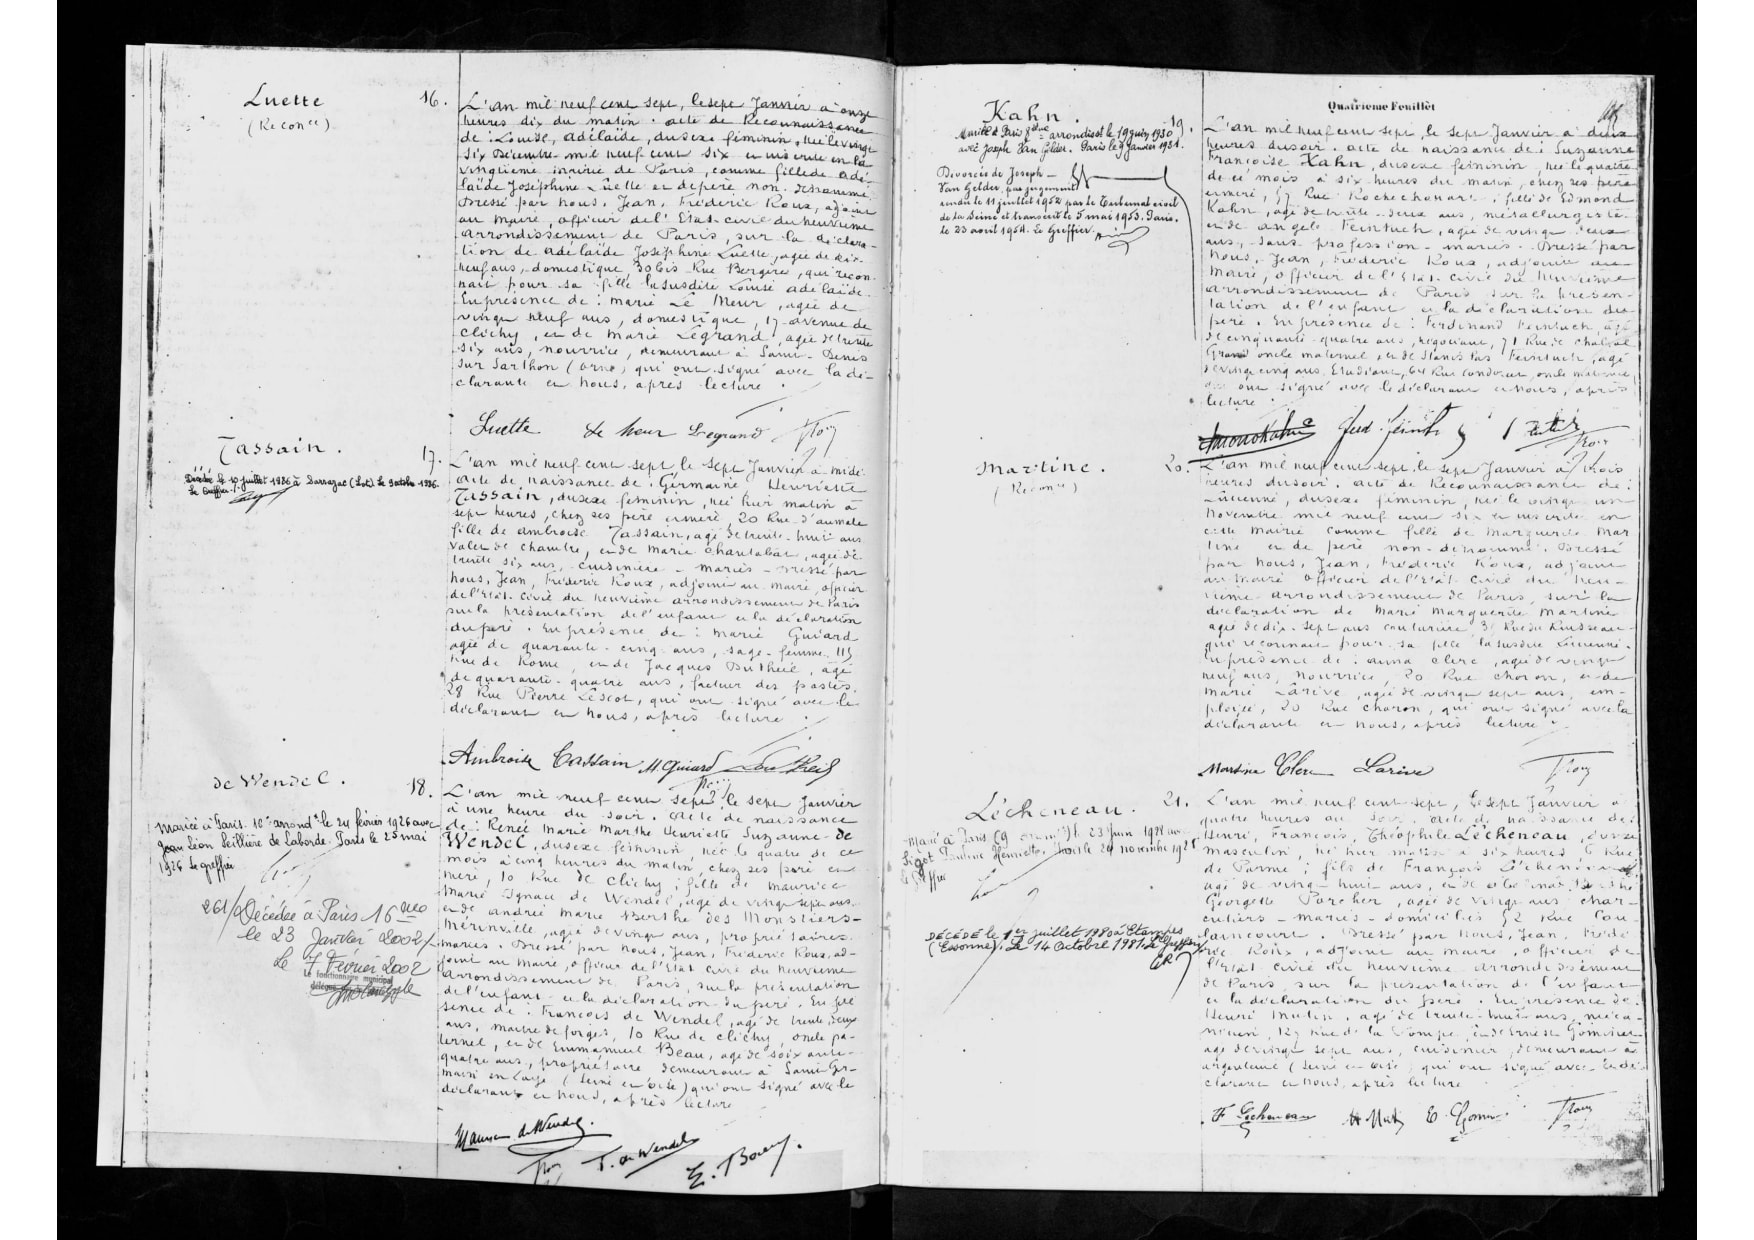 Luette
(Reconce)
16.
L'an mil neuf cent sept, le sept Janvier à onze
heures dix du matin. acte de Reconnaissance
de: Louise, adélaïde, du sexe féminin, née le vingt
six Décembre mil neuf cent six et inscrite en la
vingtième mairie de Paris, comme fille de adé-
laïde Joséphine Luette et de père non dénommé.
Dressé par Nous, Jean, Fréderic Roux, adjoint
au maire, officier de l'Etat-civil du neuvième
arrondissement de Paris, sur la déclara-
tion de adélaïde Joséphine Luette, agée de dix-
neuf ans, domestique, 30 bis Rue Bergère, qui recon-
nait pour sa fille la susdite Louise adélaïde.
En présence de: marie Le Meur, agée de
vingt neuf ans, domestique, 17 avenue de
Clichy, et de Marie Legrand, agée de trente
six ans, nourrice, demeurant à Saint-Denis
sur Sarthon (orne) qui ont signé avec la dé-
clarante et Nous, après lecture.
Luette Le Meur Legrand
Tassain.
17.
Décédée le 10 juillet 1986 à (Lot). Le
Le Greffier
L'an mil neuf cent sept, le sept Janvier à midi
acte de naissance de: Germaine Henriette
Tassain, du sexe féminin, née hier matin à
sept heures, chez ses père et mère, 20 Rue d'aumale
fille de ambroise Tassain, agé de trente-huit ans
valet de chambre, et de Marie Chantabat, agée de
trente six ans, cuisinière - mariés - Dressé par
Nous, Jean, Fréderic Roux, adjoint au maire, officier
de l'Etat-civil du neuvième arrondissement de Paris
sur la présentation de l'enfant et la déclaration
du père. En présence de: Marie Guiard
agée de quarante-cinq ans, sage-femme, 115
Rue de Rome, et de Jacques Dutheil, agé
de quarante-quatre ans, facteur des postes,
28 Rue Pierre Lescot, qui ont signé avec le
déclarant et Nous, après lecture.
Ambroise Tassain M Guiard Dutheil
de Wendel.
18.
Mariée à Paris. 16e arrondt le 24 février 1926 avec
Jean Léon Seillière de Laborde. Paris le 25 mai
1926 Le greffier
261/ Décédée à Paris 16ème
le 23 Janvier 2002/.
Le 7 Février 2002
Le fonctionnaire municipal
L'an mil neuf cent sept, le sept Janvier
à une heure du soir. acte de naissance
de: Renée Marie Marthe Henriette Suzanne de
Wendel, du sexe féminin, née le quatre de ce
mois à cinq heures du matin, chez ses père et
mère, 10 Rue de Clichy; fille de Maurice
Marie Ignace de Wendel, agé de vingt sept ans,
et de andrée Marie Berthe des Monstiers-
Mérinville, agée de vingt ans, propriétaires.
mariés. Dressé par Nous, Jean, Fréderic Roux, ad-
joint au Maire, officier de l'Etat civil du neuvième
arrondissement de Paris, sur la présentation
de l'enfant et la déclaration du père. En pré-
sence de: François de Wendel, agé de trente deux
ans, maître de forges, 10 Rue de Clichy, oncle pa-
ternel, et de Emmanuel Beau, agé de soixante-
quatre ans, propriétaire demeurant à Saint-Ger-
main en Laye (Seine et Oise) qui ont signé avec le
déclarant et Nous, après lecture
Maurice de Wendel.
F. de Wendel
Quatrième Feuillet
Kahn.
19.
Mariée à Paris 8ème arrondisst le 19 juin 1930
avec Joseph Van Gelder. Paris le 9 Janvier 1931.
Divorcée de Joseph
Van Gelder, par jugement
rendu le 11 juillet 1952 par le Tribunal civil
de la Seine et transcrit le 5 mai 1953. Paris,
le 23 août 1954. Le Greffier.
L'an mil neuf cent sept, le sept Janvier à deux
heures du soir. acte de naissance de: Suzanne
Françoise Kahn, du sexe féminin, née le quatre
de ce mois à six heures du matin, chez ses père
et mère, 57 Rue Rochechouart; fille de Edmond
Kahn, agé de trente-deux ans, métallurgiste
et de angèle Feintuch, agée de vingt deux
ans, sans profession - mariés - Dressé par
Nous, Jean, Fréderic Roux, adjoint au
Maire, officier de l'Etat-civil du neuvième
arrondissement de Paris sur la présen-
tation de l'enfant et la déclaration du
père. En présence de: Ferdinand Feintuch, agé
de cinquante-quatre ans, négociant, 71 Rue de
Grand oncle maternel, et de Stanislas Feintuch, agé
de vingt cinq ans, Etudiant, 64 Rue Condorcet, oncle maternel
qui ont signé avec le déclarant et Nous, après
lecture.
Martine.
(Reconce)
20.
L'an mil neuf cent sept, le sept Janvier à trois
heures du soir. acte de Reconnaissance de:
Lucienne, du sexe féminin, née le vingt un
Novembre mil neuf cent six et inscrite en
cette mairie comme fille de Marguerite Mar
tine et de père non-dénommé. Dressé
par Nous, Jean, Fréderic Roux, adjoint
au Maire officier de l'Etat-civil du neu-
vième arrondissement de Paris, sur la
déclaration de Marie Marguerite Martine
agée de dix-sept ans couturière Rue du Ruisseau
qui reconnait pour sa fille la susdite Lucienne.
En présence de: anna Clerc, agée de vingt
neuf ans, nourrice, 20 Rue Choron, et de
Marie Larive, agée de vingt sept ans, em-
ployée, 20 Rue Choron, qui ont signé avec la
déclarante et Nous, après lecture.
Martine Clerc Larive
Lécheneau.
21.
Marié à Paris (9 le 23 Juin 1928 avec
Pauline Henriette. Paris le 29 novembre 1928
Le Greffier
DÉCÉDÉ le 1er juillet 1980 à Etampes
(Essonne). Le 14 Octobre 1981. Le Greffier
L'an mil neuf cent sept, le sept Janvier à
quatre heures du soir. acte de naissance de:
Henri, François, Théophile Lécheneau, du sexe
masculin, né hier matin à six heures, 6 Rue
de Parme; fils de François Lécheneau,
agé de vingt huit ans, et de
Georgette Porcher, agée de vingt ans, char-
cutiers - mariés - domiciliés 52 Rue Cau-
laincourt. Dressé par Nous, Jean, Fréde
ric Roux, adjoint au maire, officier de
l'Etat civil du neuvième arrondissement
de Paris sur la présentation de l'enfant
et la déclaration du père. En présence de:
Henri Mutin, agé de trente-huit ans, méca-
nicien, 129 Rue de la Pompe, et de Ernest
agé de vingt sept ans, cuisinier, demeurant à
argenteuil (Seine et Oise) qui ont signé avec le dé-
clarant et Nous, après lecture
F Lecheneau